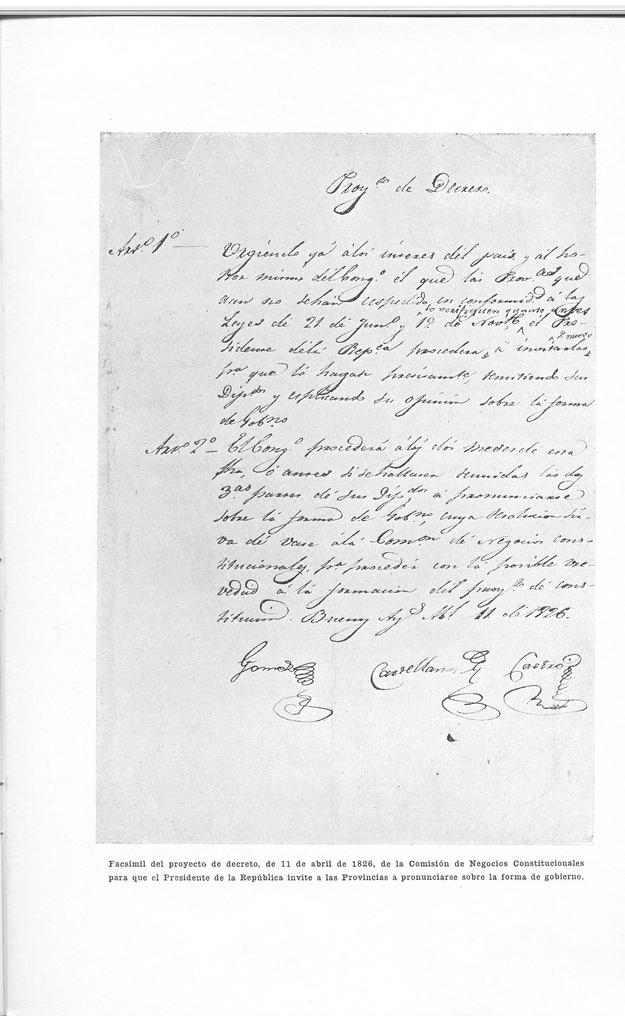 Proy.to de Decreto.
Art.o 1o Urgiendo ya á los interes del pais y al ho-
nor mismo del Cong.o el que las Prov.as que
aun no se han espedido, en conformid.d á las
se verifiquen quanto antes
Leyes de 21 de Jun.o y 1o de Nov.e, el Pre-
de nuevo
sidente de la Rep.ca procederá, á invitarlas
p.a que lo hagan, remitiendo sus
Dip.dos y espresando su opinion sobre la forma
de Gob.no
Art.o 2o El Cong.o procederá á los dos meses de esta
fha, ó antes si se hallasen reunidas las dos
3.as partes de sus Dip.dos, á pronunciarse
sobre la forma de Gob.no, cuya resolucion sir-
va de vase á la Comon de Negocios cons-
titucionales, p.a proceder con la posible bre-
vedad á la formacion del proy.to de cons-
titucion. Buenos Ay.s Ab.l 11 de 1826.
Gomez Castellanos Castro
Facsímil del proyecto de decreto, de 11 de abril de 1826, de la Comisión de Negocios Constitucionales
para que el Presidente de la República invite a las Provincias a pronunciarse sobre la forma de gobierno.